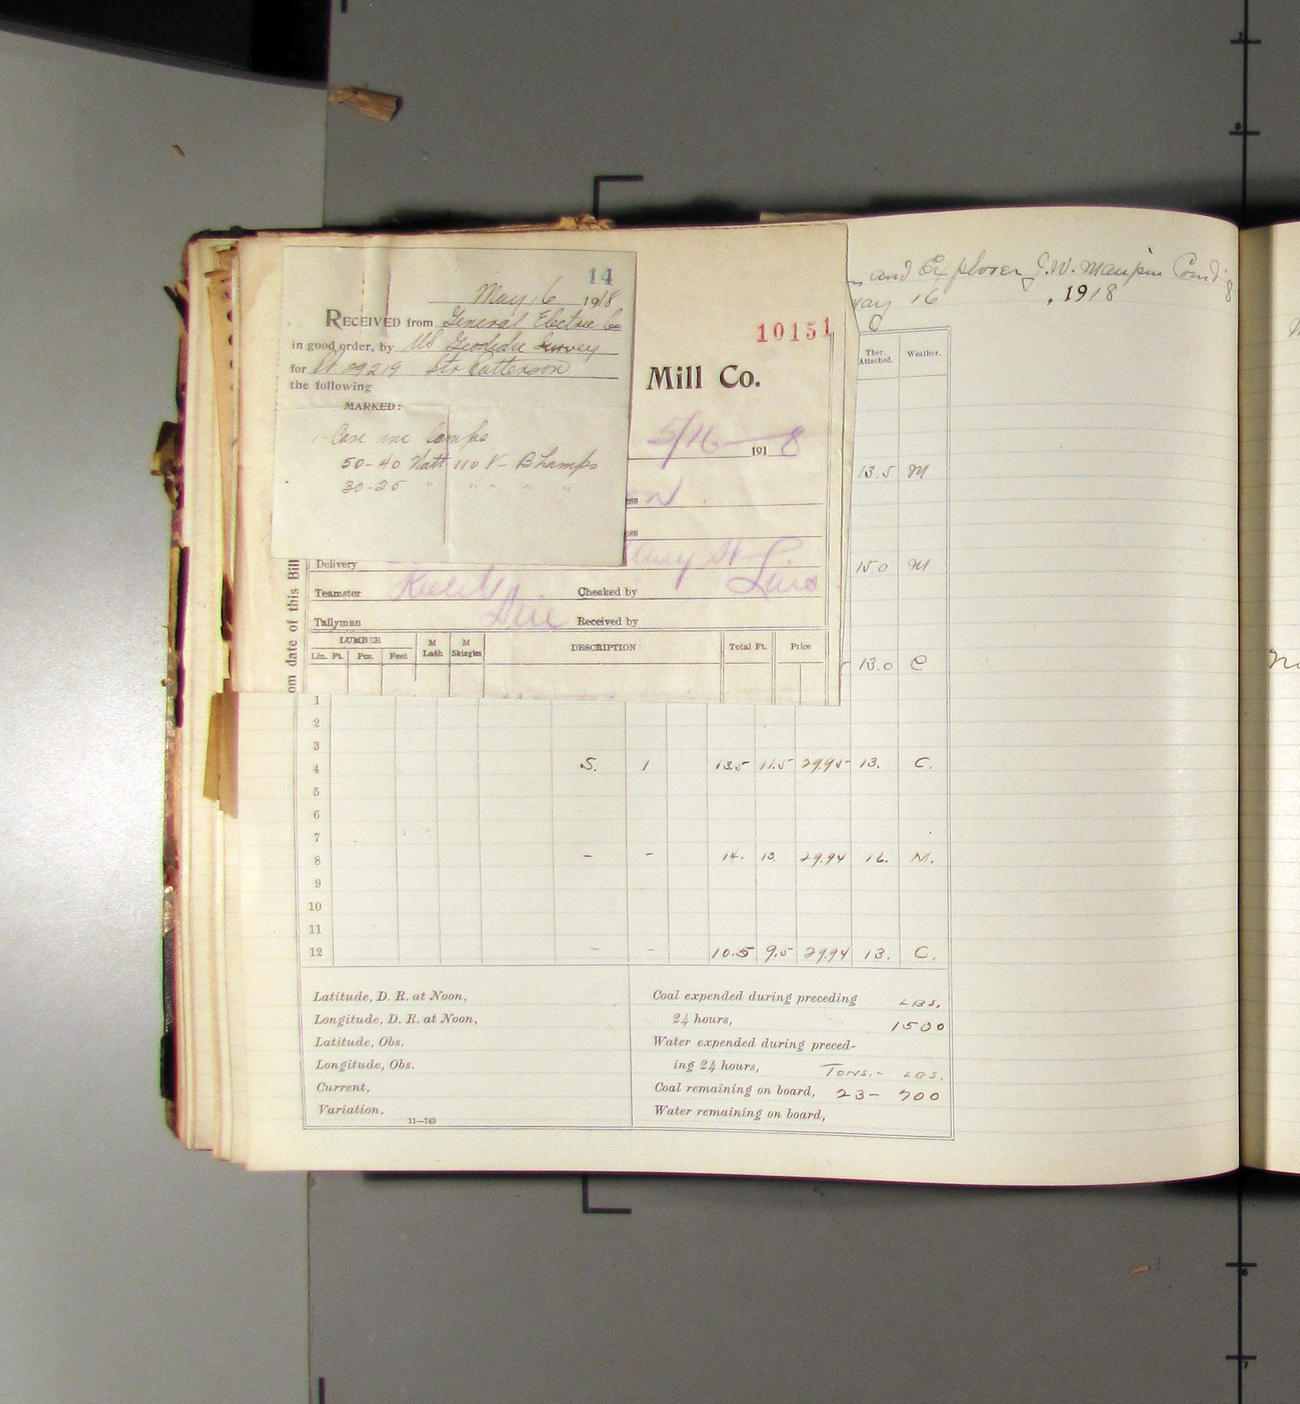 and Explorer, J.W. Maupin Comd'g
16, 1918
14
May 16 1918
RECEIVED from General Electric Co
in good order, by US Geodedic Survey
for 09219 Str Patterson
the following
MARKED:
1- Case inc lamps
50-40 Watt 110 V- B Lamps
30-25 " " " " "
10151
Mill Co.
5/16 1918
Delivery St
Teamster Checked by
Tallyman Received by
om date of this Bill
LUMBER M Lath M Shingles DESCRIPTION Total Ft. Price
Lin. Ft. Pcs. Feet
Ther. Attached. Weather.
13.5 M
15.0 M
13.0 C
1
2
3
4 S. 1 13.5 11.5 29.95 13. C.
5
6
7
8 - - 14. 13. 29.94 16. M.
9
10
11
12 - - 10.5 9.5 29.94 13. C.
Latitude, D. R. at Noon,
Longitude, D. R. at Noon,
Latitude, Obs.
Longitude, Obs.
Current,
Variation.
11—743
Coal expended during preceding LBS.
24 hours, 1500
Water expended during preced-
ing 24 hours, TONS.- LBS.
Coal remaining on board, 23- 700
Water remaining on board,